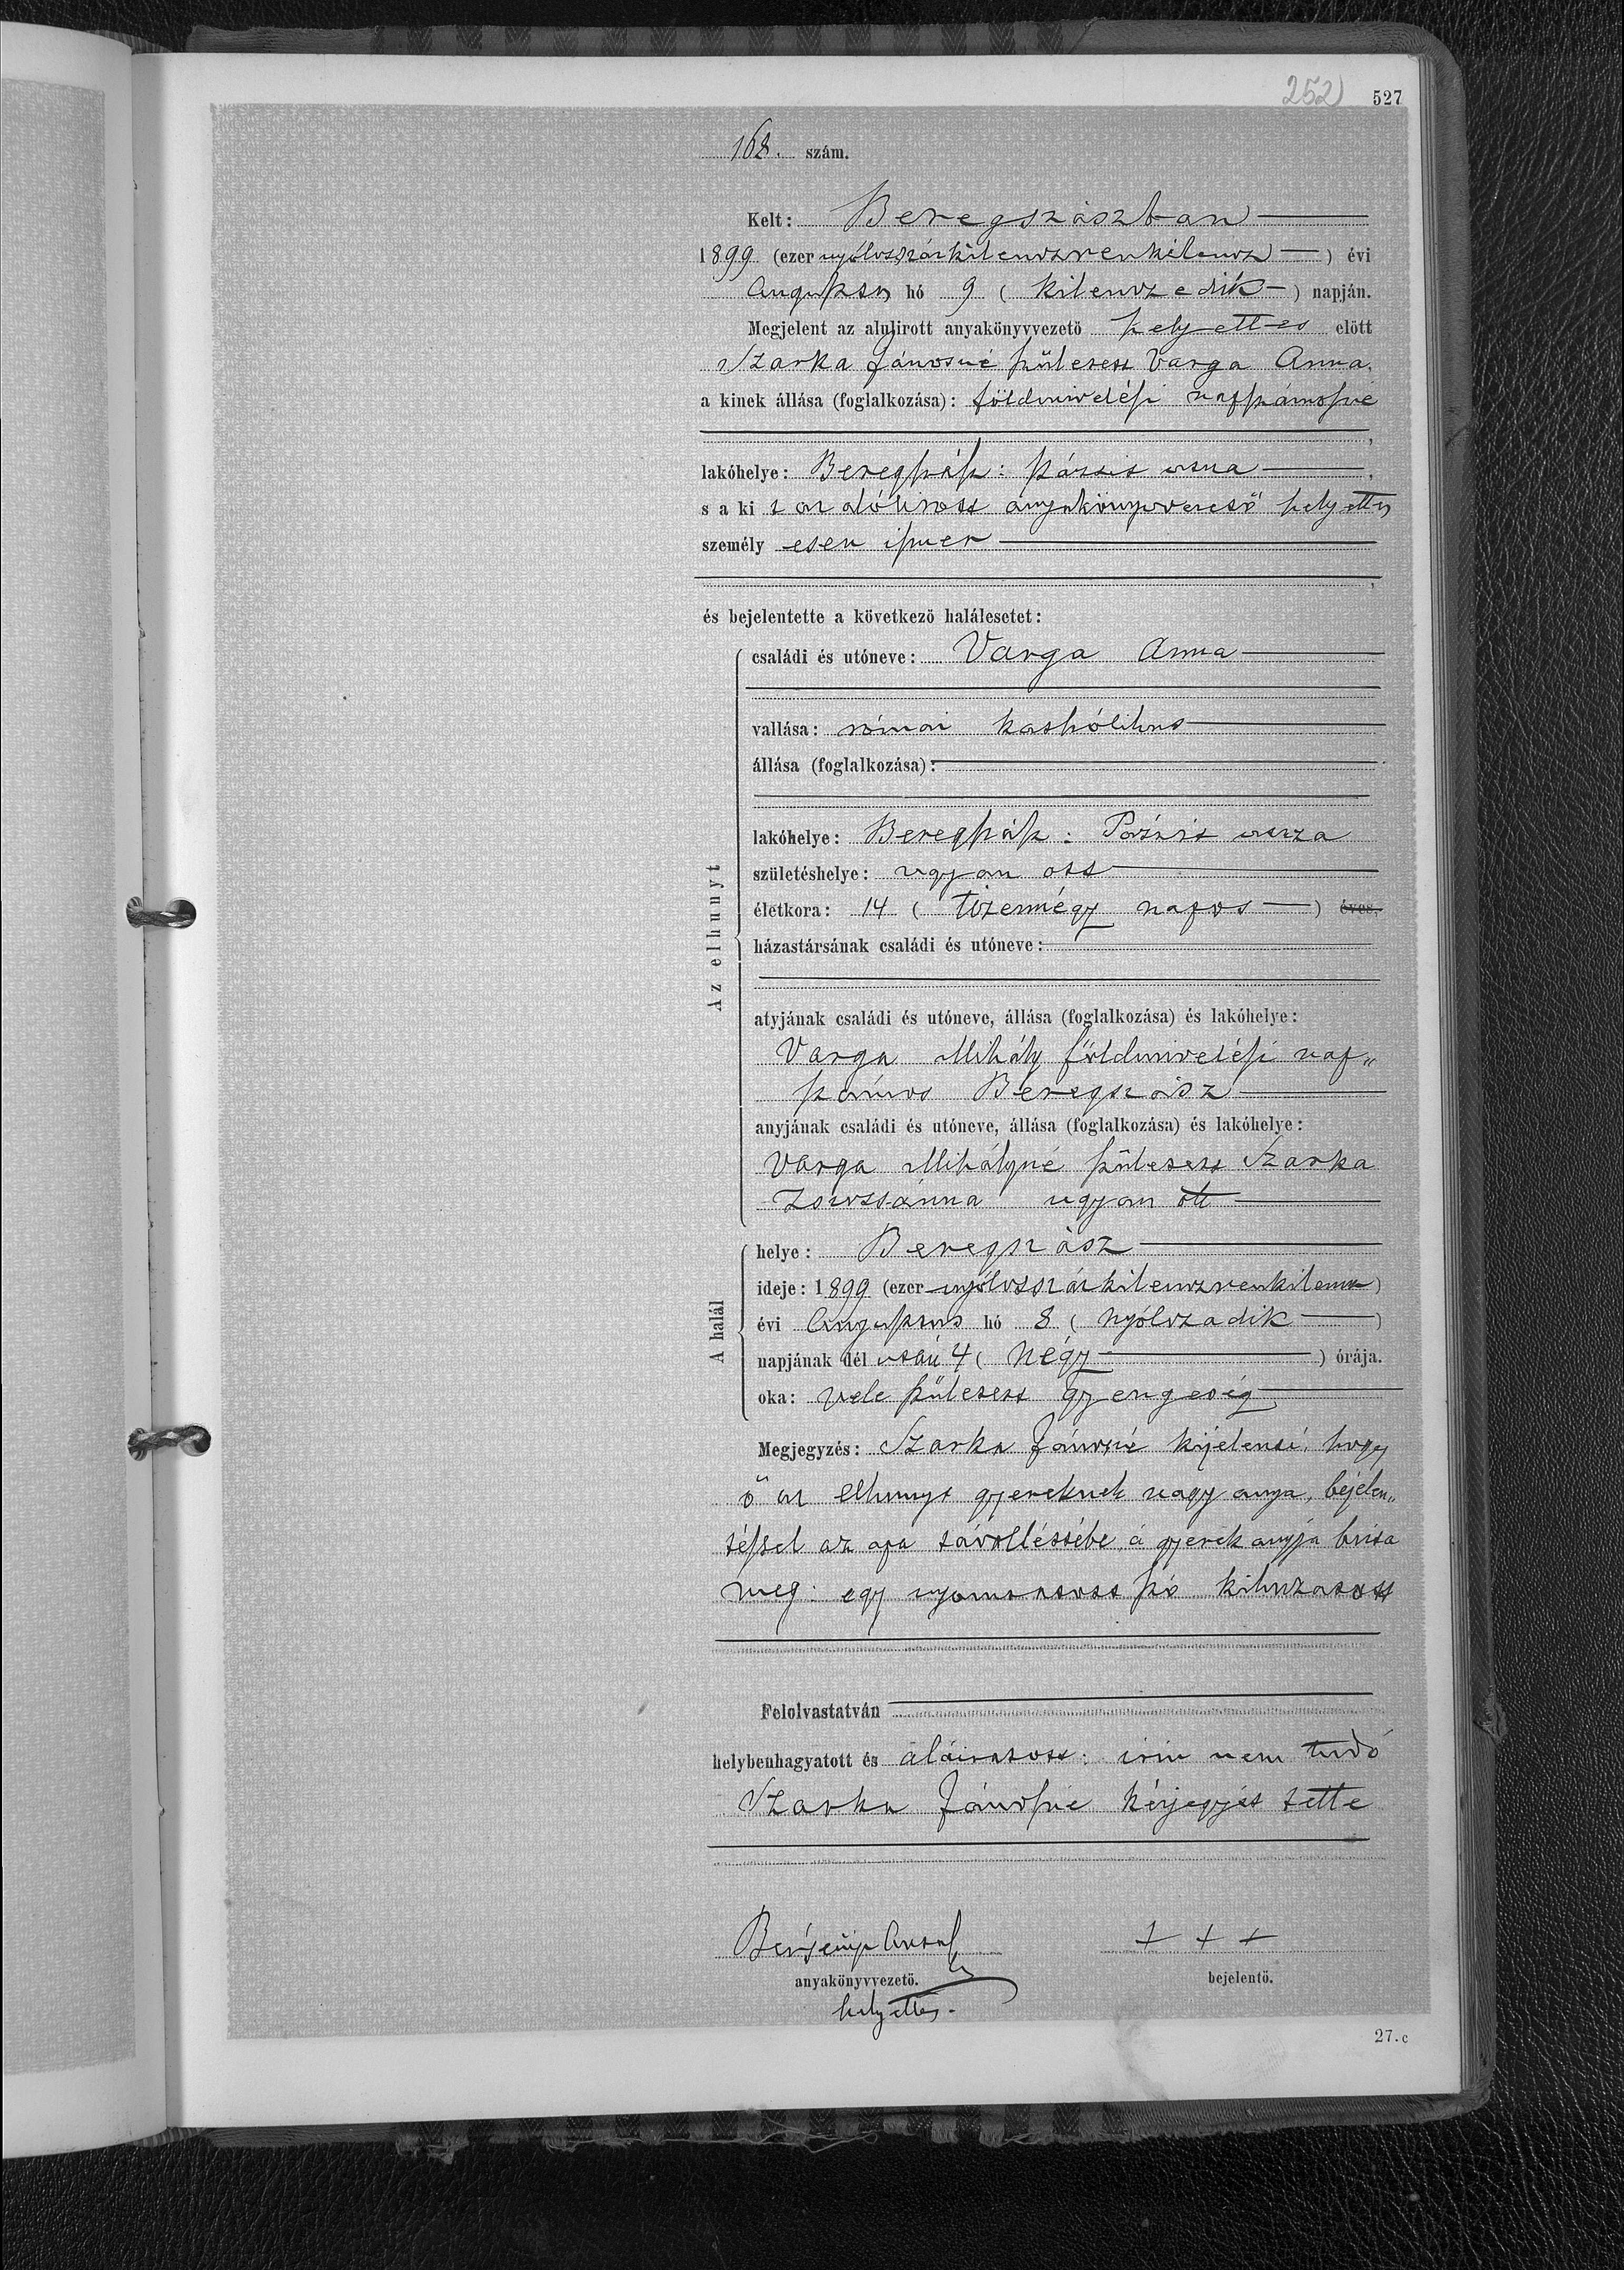 252
527
168. szám.
Kelt: Beregszászban
1899 (ezer nyólczszázkilenczvenkilencz) évi
Augusztus hó 9 (kilenczedik) napján.
Megjelent az alulirott anyakönyvvezető helyettes előtt
Szarka Jánosné született Varga Anna,
a kinek állása (foglalkozása): földmivelési napszámosné
lakóhelye: Beregszász: utcza,
s a ki t az alólirott anyakönyvvezető helyettes
személy esen ismer
és bejelentette a következő halálesetet:
Az elhunyt
családi és utóneve: Varga Anna
vallása: római kathólikus
állása (foglalkozása):
lakóhelye: Beregszász: utcza
születéshelye: ugyan ott
életkora: 14 (Tizennégy napos) éves,
házastársának családi és utóneve:
atyjának családi és utóneve, állása (foglalkozása) és lakóhelye:
Varga Mihály földmivelési nap„
számos Beregszász
anyjának családi és utóneve, állása (foglalkozása) és lakóhelye:
Varga Mihályné született Szarka
Zsuzsánna ugyan ott
A halál
helye: Beregszász
ideje: 1899 (ezer nyólczszázkilenczvenkilencz)
évi Augusztus hó 8 (nyólczadik)
napjának dél után 4 (négy) órája.
oka: vele született gyengeség
Megjegyzés: Szarka Jánosné kijelenté, hogy
ő az elhunyt gyereknek nagy anya, bejelen„
téssel az apa távollétébe, a gyerek anyja bizta
meg: egy nyomtatott szó kihuzatott
Felolvastatván
helybenhagyatott és aláiratott: irni nem tudó
Szarka Jánosné kézjegyét tette
+ + +
anyakönyvvezető.
bejelentő.
helyettes.
27. c